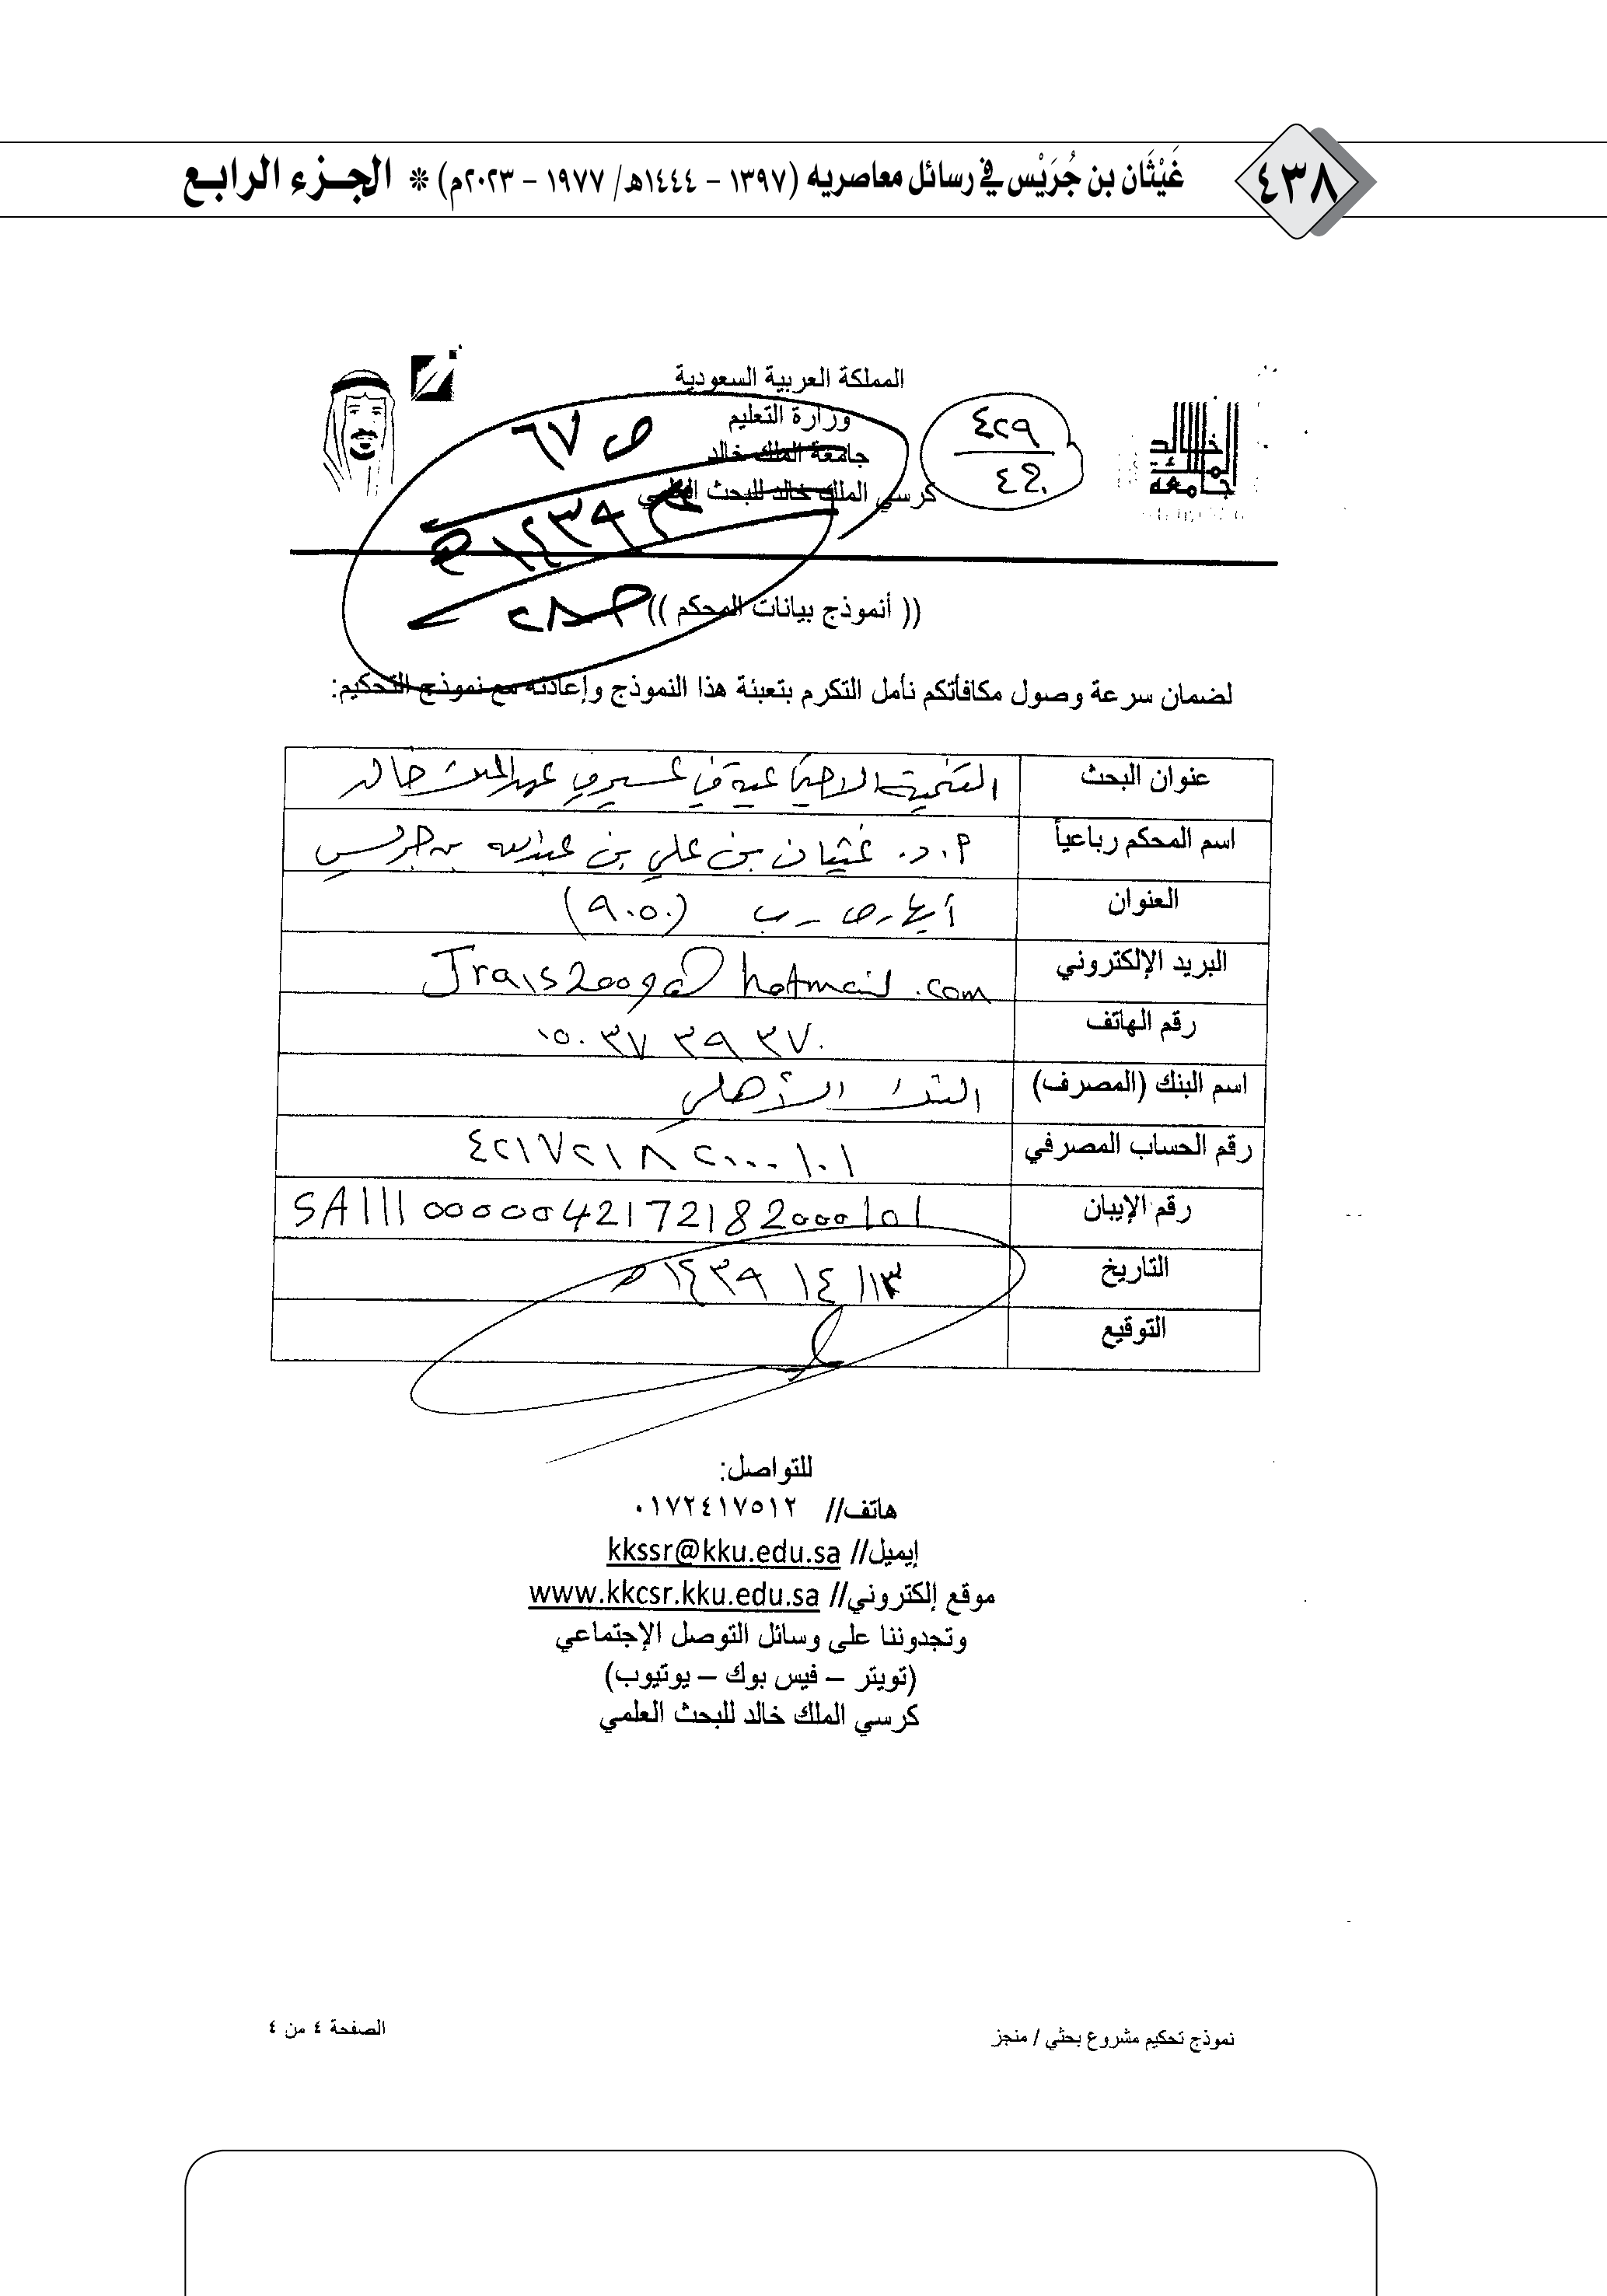 ٤٣٨
غَيْثَان بن جُرَيْس في رسائل معاصريه (١٣٩٧ - ١٤٤٤هـ/ ١٩٧٧ - ٢٠٢٣م) * الجزء الرابع
المملكة العربية السعودية
وزارة التعليم
جامعة الملك خالد
كرسي الملك خالد للبحث العلمي
جامعة الملك خالد
٤٢٩
ص ٦٧
١٤٣٩
(( أنموذج بيانات المحكم ))
لضمان سرعة وصول مكافأتكم نأمل التكرم بتعبئة هذا النموذج وإعادته مع نموذج التحكيم:
عنوان البحث التنمية الاجتماعية في عسير في عهد الملك خالد
اسم المحكم رباعياً أ.د. غيثان بن علي بن عبدالله بن جريس
العنوان أبها - ص - ب (٩٠٥٠)
البريد الإلكتروني Jrais2009@hotmail.com
رقم الهاتف ٠٥٠٣٧٣٩٣٧٠
اسم البنك (المصرف) البنك الأهلي
رقم الحساب المصرفي ٤٢١٧٢١٨٢٠٠٠١٠١
رقم الإيبان SA1110000042172182000101
التاريخ ١٤٣٩ هـ
التوقيع
للتواصل:
هاتف// ٠١٧٢٤١٧٥١٢
إيميل// kkssr@kku.edu.sa
موقع إلكتروني// www.kkcsr.kku.edu.sa
وتجدوننا على وسائل التوصل الإجتماعي
(تويتر – فيس بوك – يوتيوب)
كرسي الملك خالد للبحث العلمي
نموذج تحكيم مشروع بحثي / منجز
الصفحة ٤ من ٤